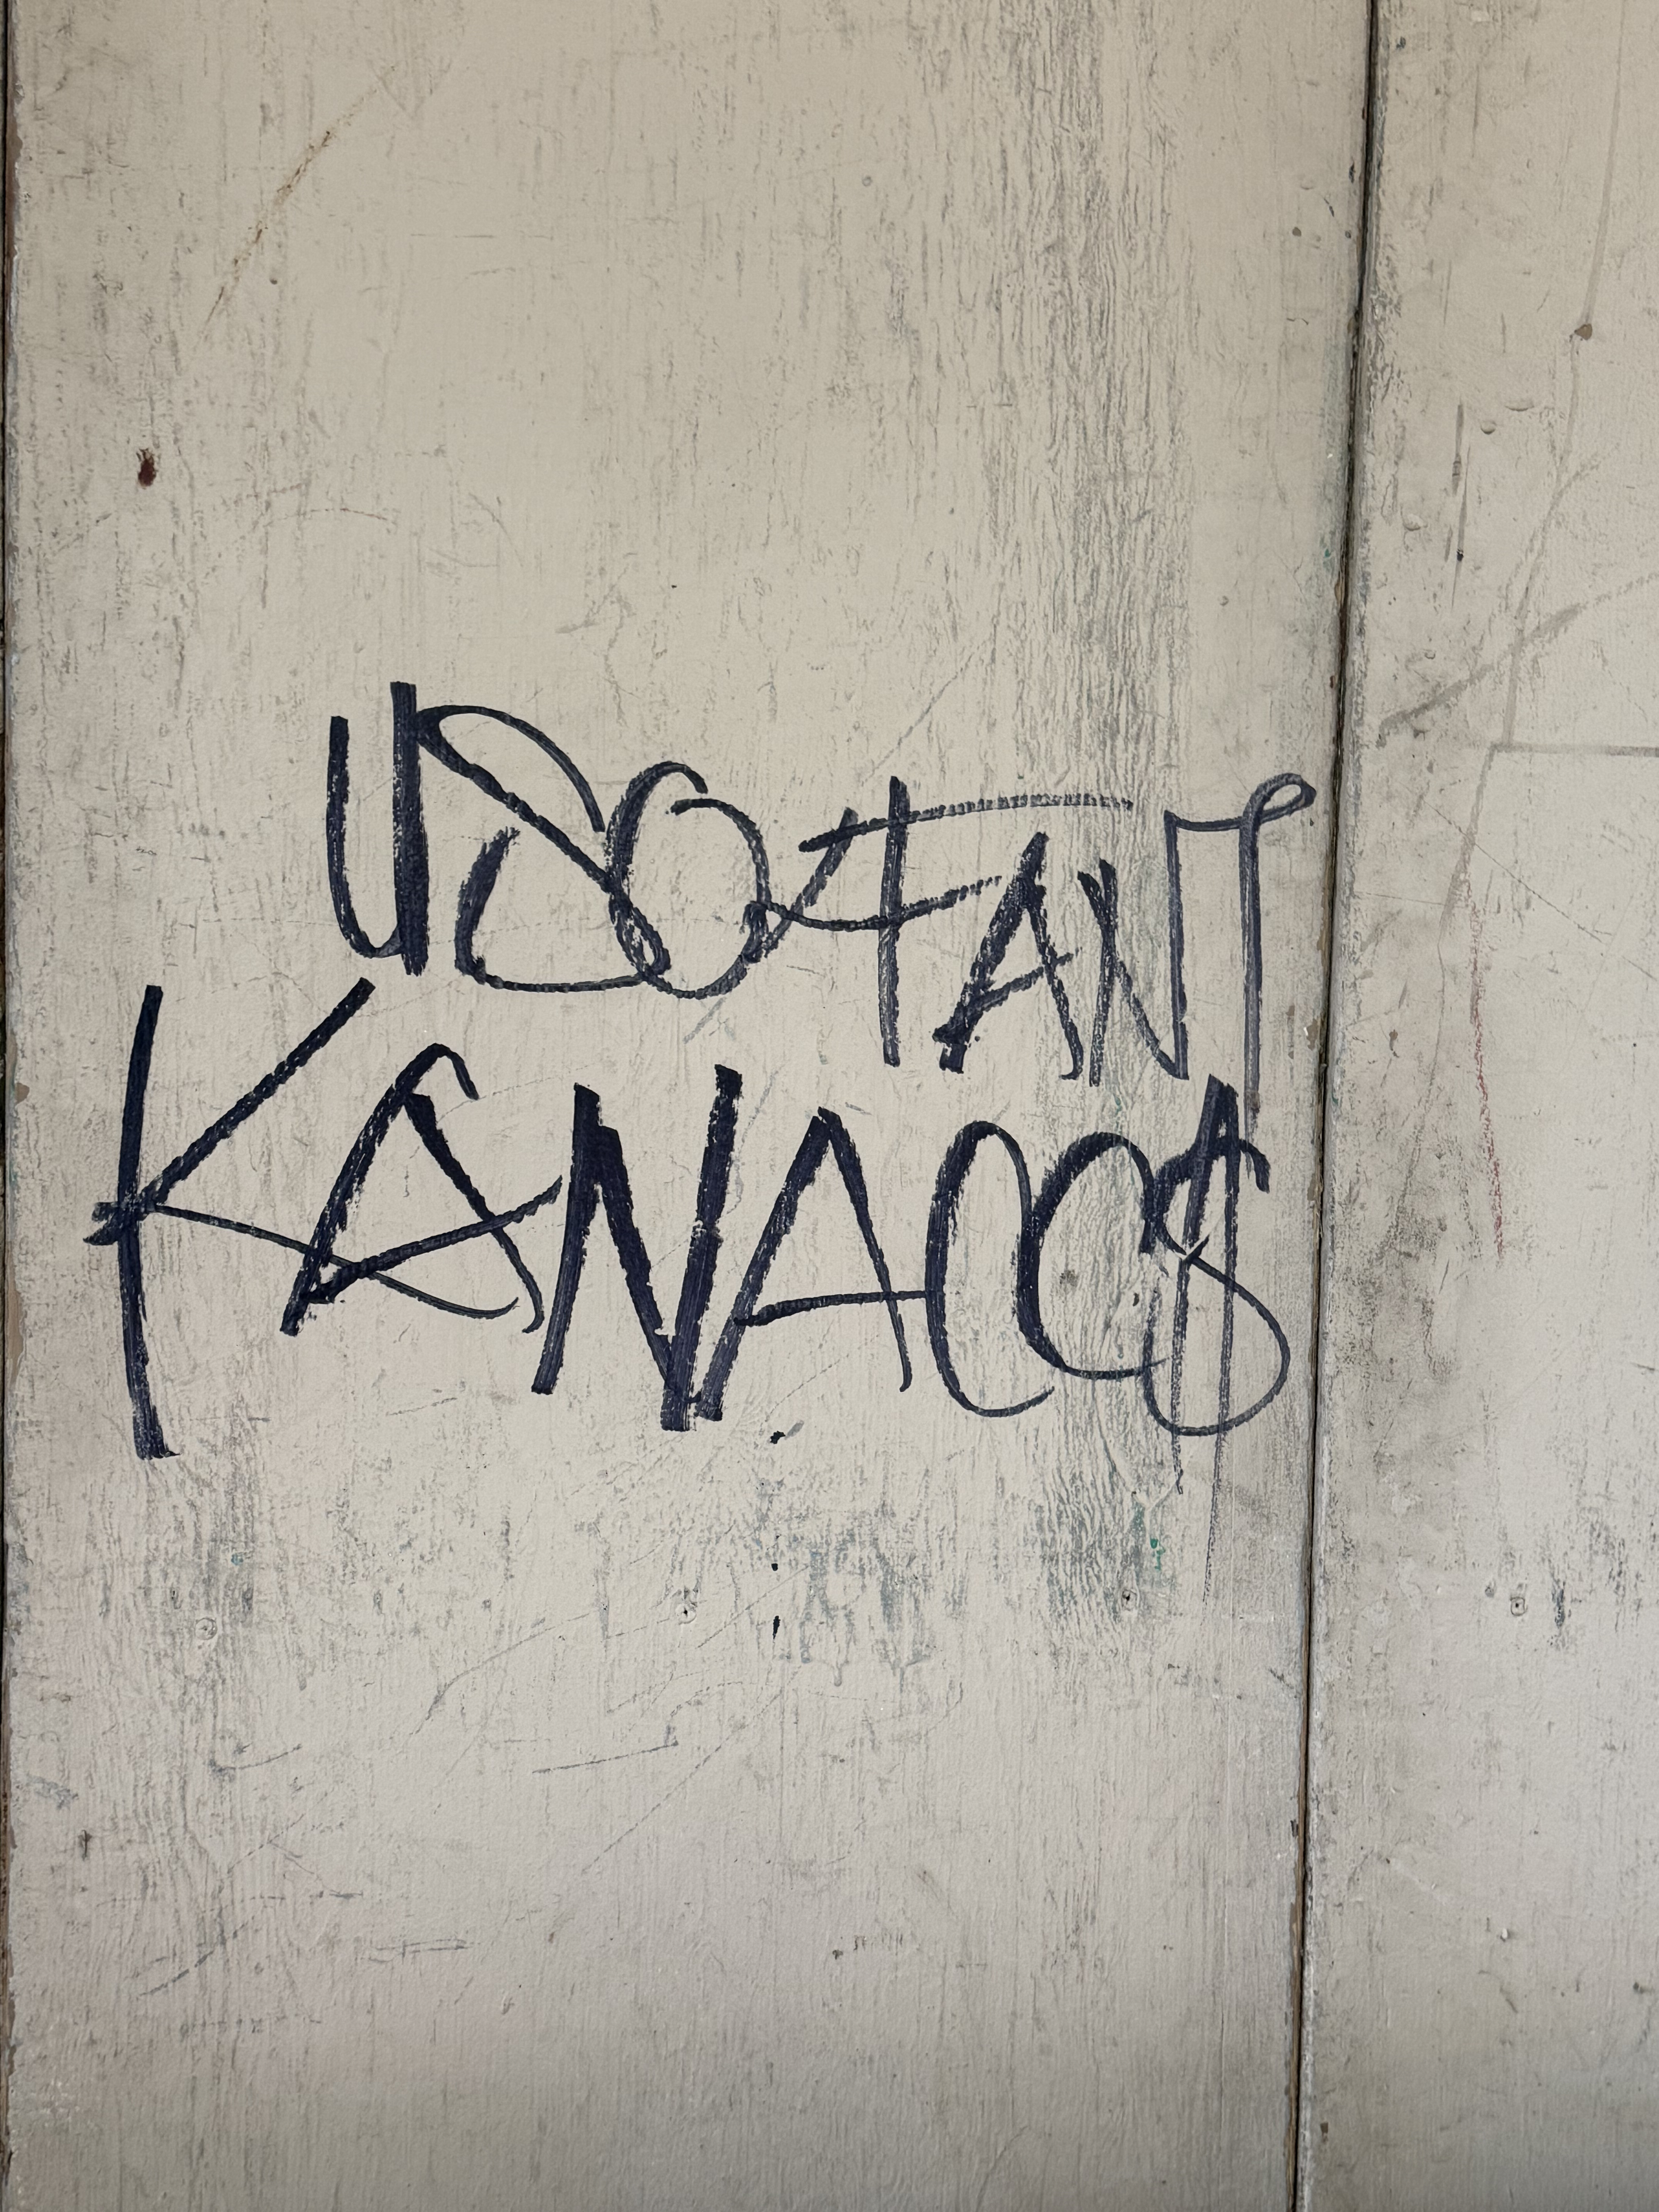 USO FANT
KANACCS